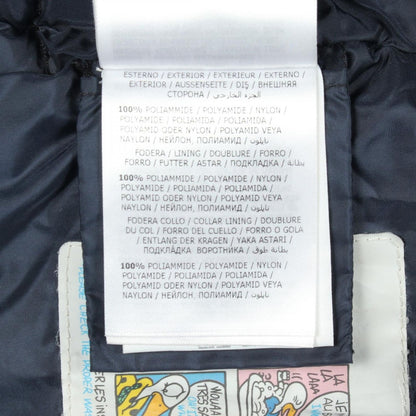 ESTERNO / EXTERIOR / EXTERIEUR / EXTERNO
/ EXTERIOR / AUSSENSEITE / DIŞ / ВНЕШНЯЯ
СТОРОНА / الجزء الخارجي
100% POLIAMMIDE / POLYAMIDE / NYLON /
POLYAMIDE / POLIAMIDA / POLIAMIDA /
POLYAMID ODER NYLON / POLYAMID VEYA
NAYLON / НЕЙЛОН, ПОЛИАМИД / نايلون
FODERA / LINING / DOUBLURE / FORRO /
FORRO / FUTTER / ASTAR / ПОДКЛАДКА / بطانة
100% POLIAMMIDE / POLYAMIDE / NYLON /
POLYAMIDE / POLIAMIDA / POLIAMIDA /
POLYAMID ODER NYLON / POLYAMID VEYA
NAYLON / НЕЙЛОН, ПОЛИАМИД / نايلون
FODERA COLLO / COLLAR LINING / DOUBLURE
DU COL / FORRO DEL CUELLO / FORRO O GOLA
/ ENTLANG DER KRAGEN / YAKA ASTARI /
ПОДКЛАДКА ВОРОТНИКА / بطانة طوق
100% POLIAMMIDE / POLYAMIDE / NYLON /
POLYAMIDE / POLIAMIDA / POLIAMIDA /
POLYAMID ODER NYLON / POLYAMID VEYA
NAYLON / НЕЙЛОН, ПОЛИАМИД / نايلون
PLEASE CHECK THE PROPER WA
ERLES IN
MOUAAA
TRES SA